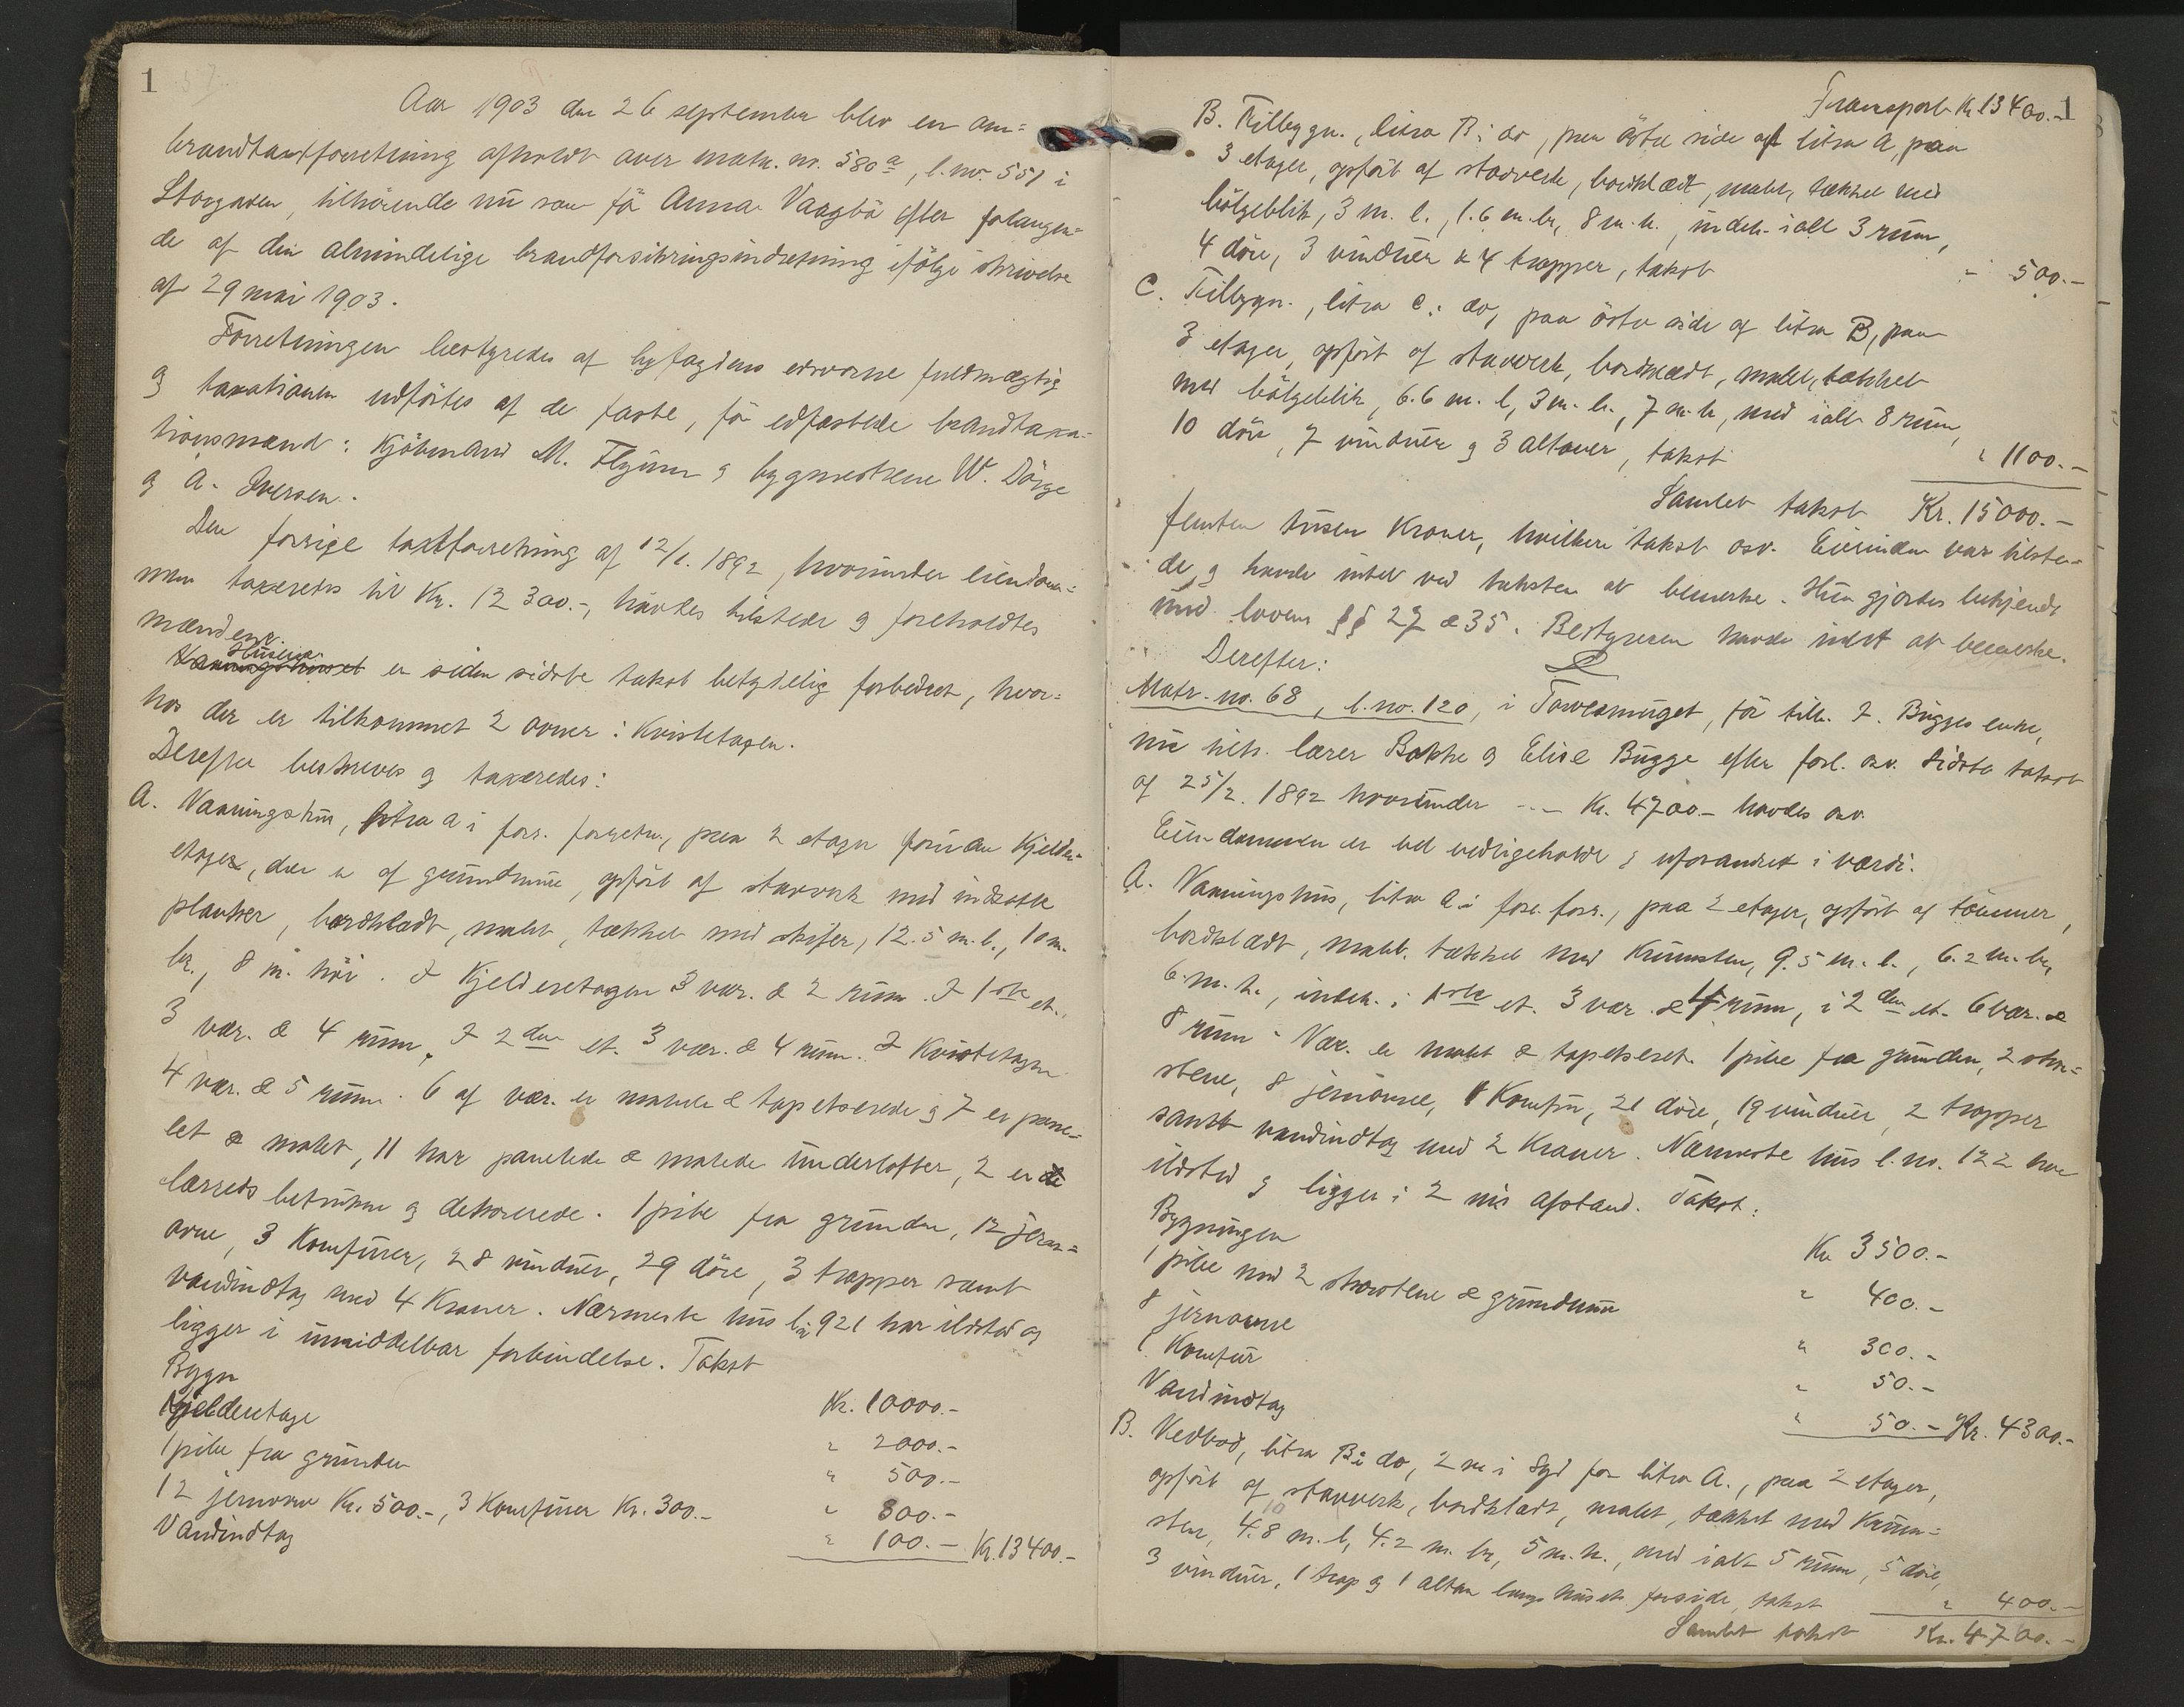 1
Aar 1903 den 26 september blev en om=
brandtaxtforretning afholdt over matr. no. 580 a, l. no. 551 i
Storgaden, tilhörende nu som för Anna Vaagbö efter forlangen=
de af den almindelige brandforsikringsindretning ifölge skrivelse
af 29 mai 1903.
Forretningen bestyredes af byfogdens edsvorne fuldmægtig
og taxationen udförtes af de faste, för edfæstede brandtaxa=
tionsmænd: Kjöbmand M. Flyum og bygmestrene W. Dörge
og A. Iversen.
Den forrige taxtforretning af 12/1. 1892, hvorunder eiendom=
men taxeredes til Kr. 12 300.-, havdes tilstede og foreholdtes
mændene.
Vaaningshuset Husene er siden sidste takst betydelig forbedret, hvor=
hos der er tilkommet 2 ovner i Kvistetagen.
Derefter beskreves og taxeredes:
A. Vaaningshus, litra a i forr. forretn., paa 2 etager foruden Kjelder=
etager, der er af grundmur, opfört af stavverk med indsatte
planker, bordklædt, malet, tækket med skifer, 12.5 m. l., 10 m.
br., 8 m. höi. I Kjelderetagen 3 vær. & 2 rum. I 1ste et.
3 vær. & 4 rum. I 2den et. 3 vær. & 4 rum. I Kvistetagen
4 vær. & 5 rum. 6 af vær. er malede & tapetserede og 7 er pane=
let & malet, 11 har panelede & malede underlofter, 2 er
lærreds betrukne og dekorerede. 1 pibe fra grunden, 12 jern=
ovne, 3 Komfurer, 28 vinduer, 29 döre, 3 trapper samt
vandindtag med 4 Kraner. Nærmeste hus l. nr 921 har ildsted og
ligger i umiddelbar forbindelse. Takst
Bygn Kr. 10000.-
Kjelderetage " 2000.-
1 pibe fra grunden " 500.-
12 jernovne Kr. 500.-, 3 Komfurer Kr. 300.- " 800.-
Vandindtag " 100.- Kr. 13400.-
1
Transport Kr 13400.-
B. Tilbygn., litra B i do, paa östre side af litra A, paa
3 etager, opfört af stavverk, bordklædt, malet, tækket med
bölgeblik, 3 m. l., 1.6 m. br., 8 m. h., indeh. ialt 3 rum,
4 döre, 3 vinduer & 4 trapper, takst " 500.-
C. Tilbygn., litra C i do, paa östre side af litra B, paa
3 etager, opfört af stavverk, bordklædt, malet, tækket
med bölgeblik, 6.6 m. l, 3 m. br., 7 m. h, med ialt 8 rum,
10 döre, 7 vinduer og 3 altaner, takst " 1100.-
Samlet takst Kr. 15000.-
femten tusen Kroner, hvilken takst osv. Eierinden var tilste=
de og havde intet ved taksten at bemerke. Hun gjordes bekjendt
med lovens §§ 27 & 35. Bestyreren havde intet at bemerke.
Derefter:
Matr. no. 68, l. no. 120, i Torvesmuget, för tilh. J. Bugges enke,
nu tilh. lærer Bakke og Elise Bugge efter forl. osv. Sidste takst
af 25/2. 1892 hvorunder --- Kr. 4700.- havdes osv.
Eiendommen er vel vedligeholdt & uforandret i værdi.
A. Vaaningshus, litra A i forr. forr., paa 2 etager, opfört af tömmer,
bordklædt, malet, tækket med Krumsten, 9.5 m. l., 6.2 m. br,
6 m. h., indeh. i 1ste et. 3 vær. & 4 rum, i 2den et. 6 vær. &
8 rum. Vær. er malet & tapetseret. 1 pibe fra grunden, 2 skor=
stene, 8 jernovne, 1 Komfur, 21 döre, 19 vinduer, 2 trapper
samt vandindtag med 2 Kraner. Nærmeste hus l. no. 122 har
ildsted og ligger i 2 m's afstand. Takst:
Bygningen Kr 3500.-
1 pibe med 2 skorstene & grundmur " 400.-
8 jernovne " 300.-
1 Komfur " 50.-
Vandindtag " 50.- Kr. 4300.-
B. Vedbod, litra B i do, 2 m i Syd for litra A., paa 2 etager,
opfört af stavverk, bordklædt, malet, tækket med Krum=
sten, 4.8 m. l, 4.2 m. br, 5 m. h., med ialt 5 rum, 5 döre,
3 vinduer, 1 trap og 1 altan langs husets forside, takst " 400.-
Samlet takst Kr. 4700.-